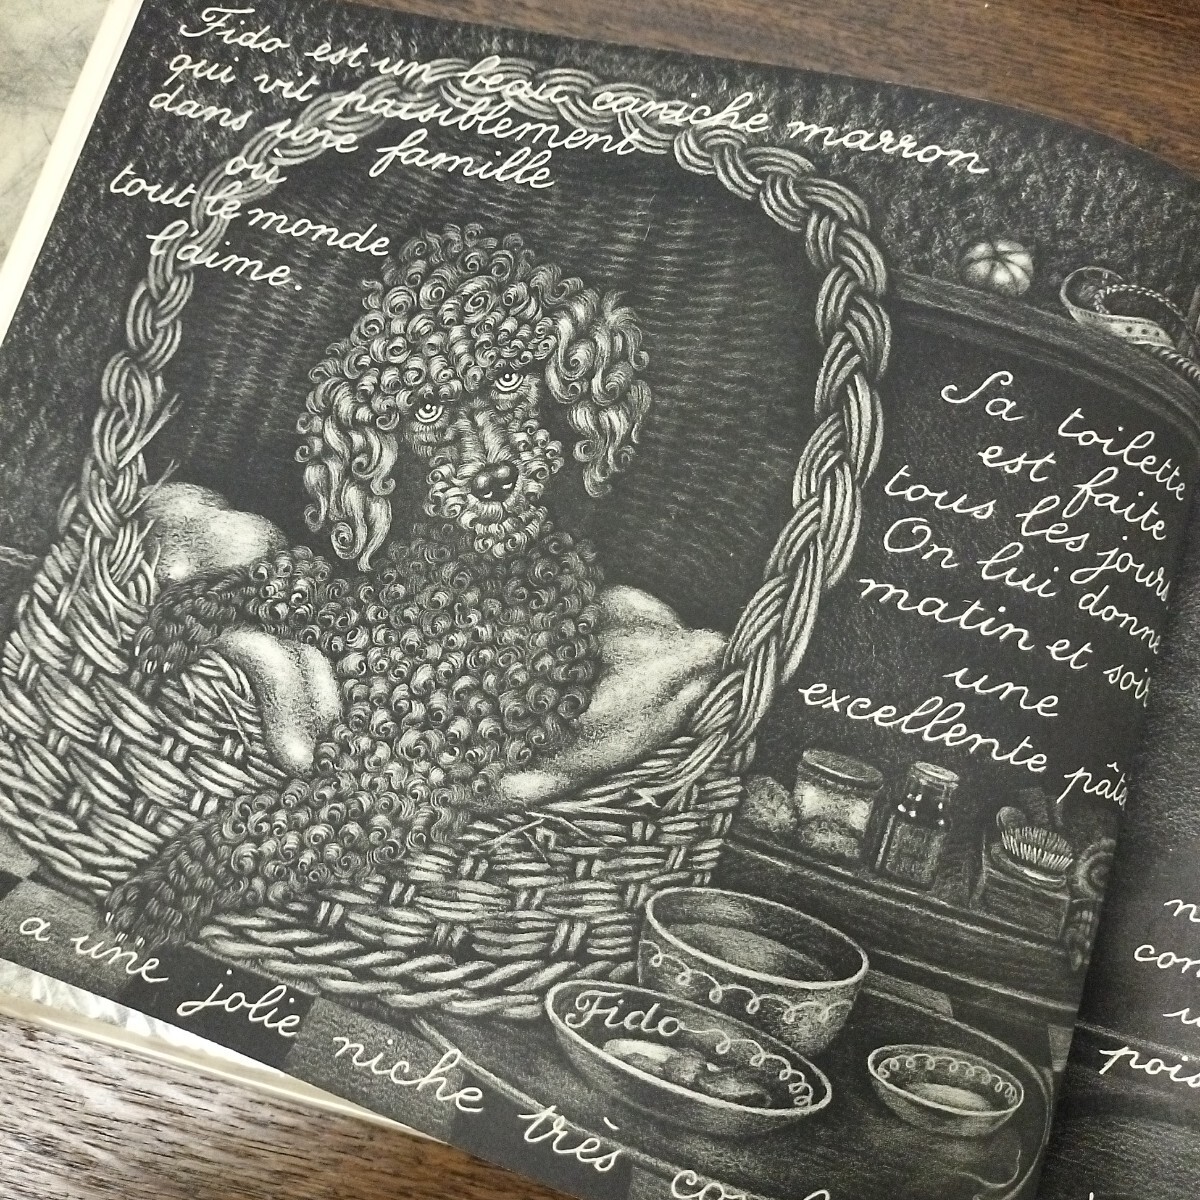 Fido est un beau caniche marron
qui vit paisiblement
dans une famille
où
tout le monde
l'aime.
Sa toilette
est faite
tous les jours
On lui donne
matin et soir
une
excellente
a une jolie niche très
Fido